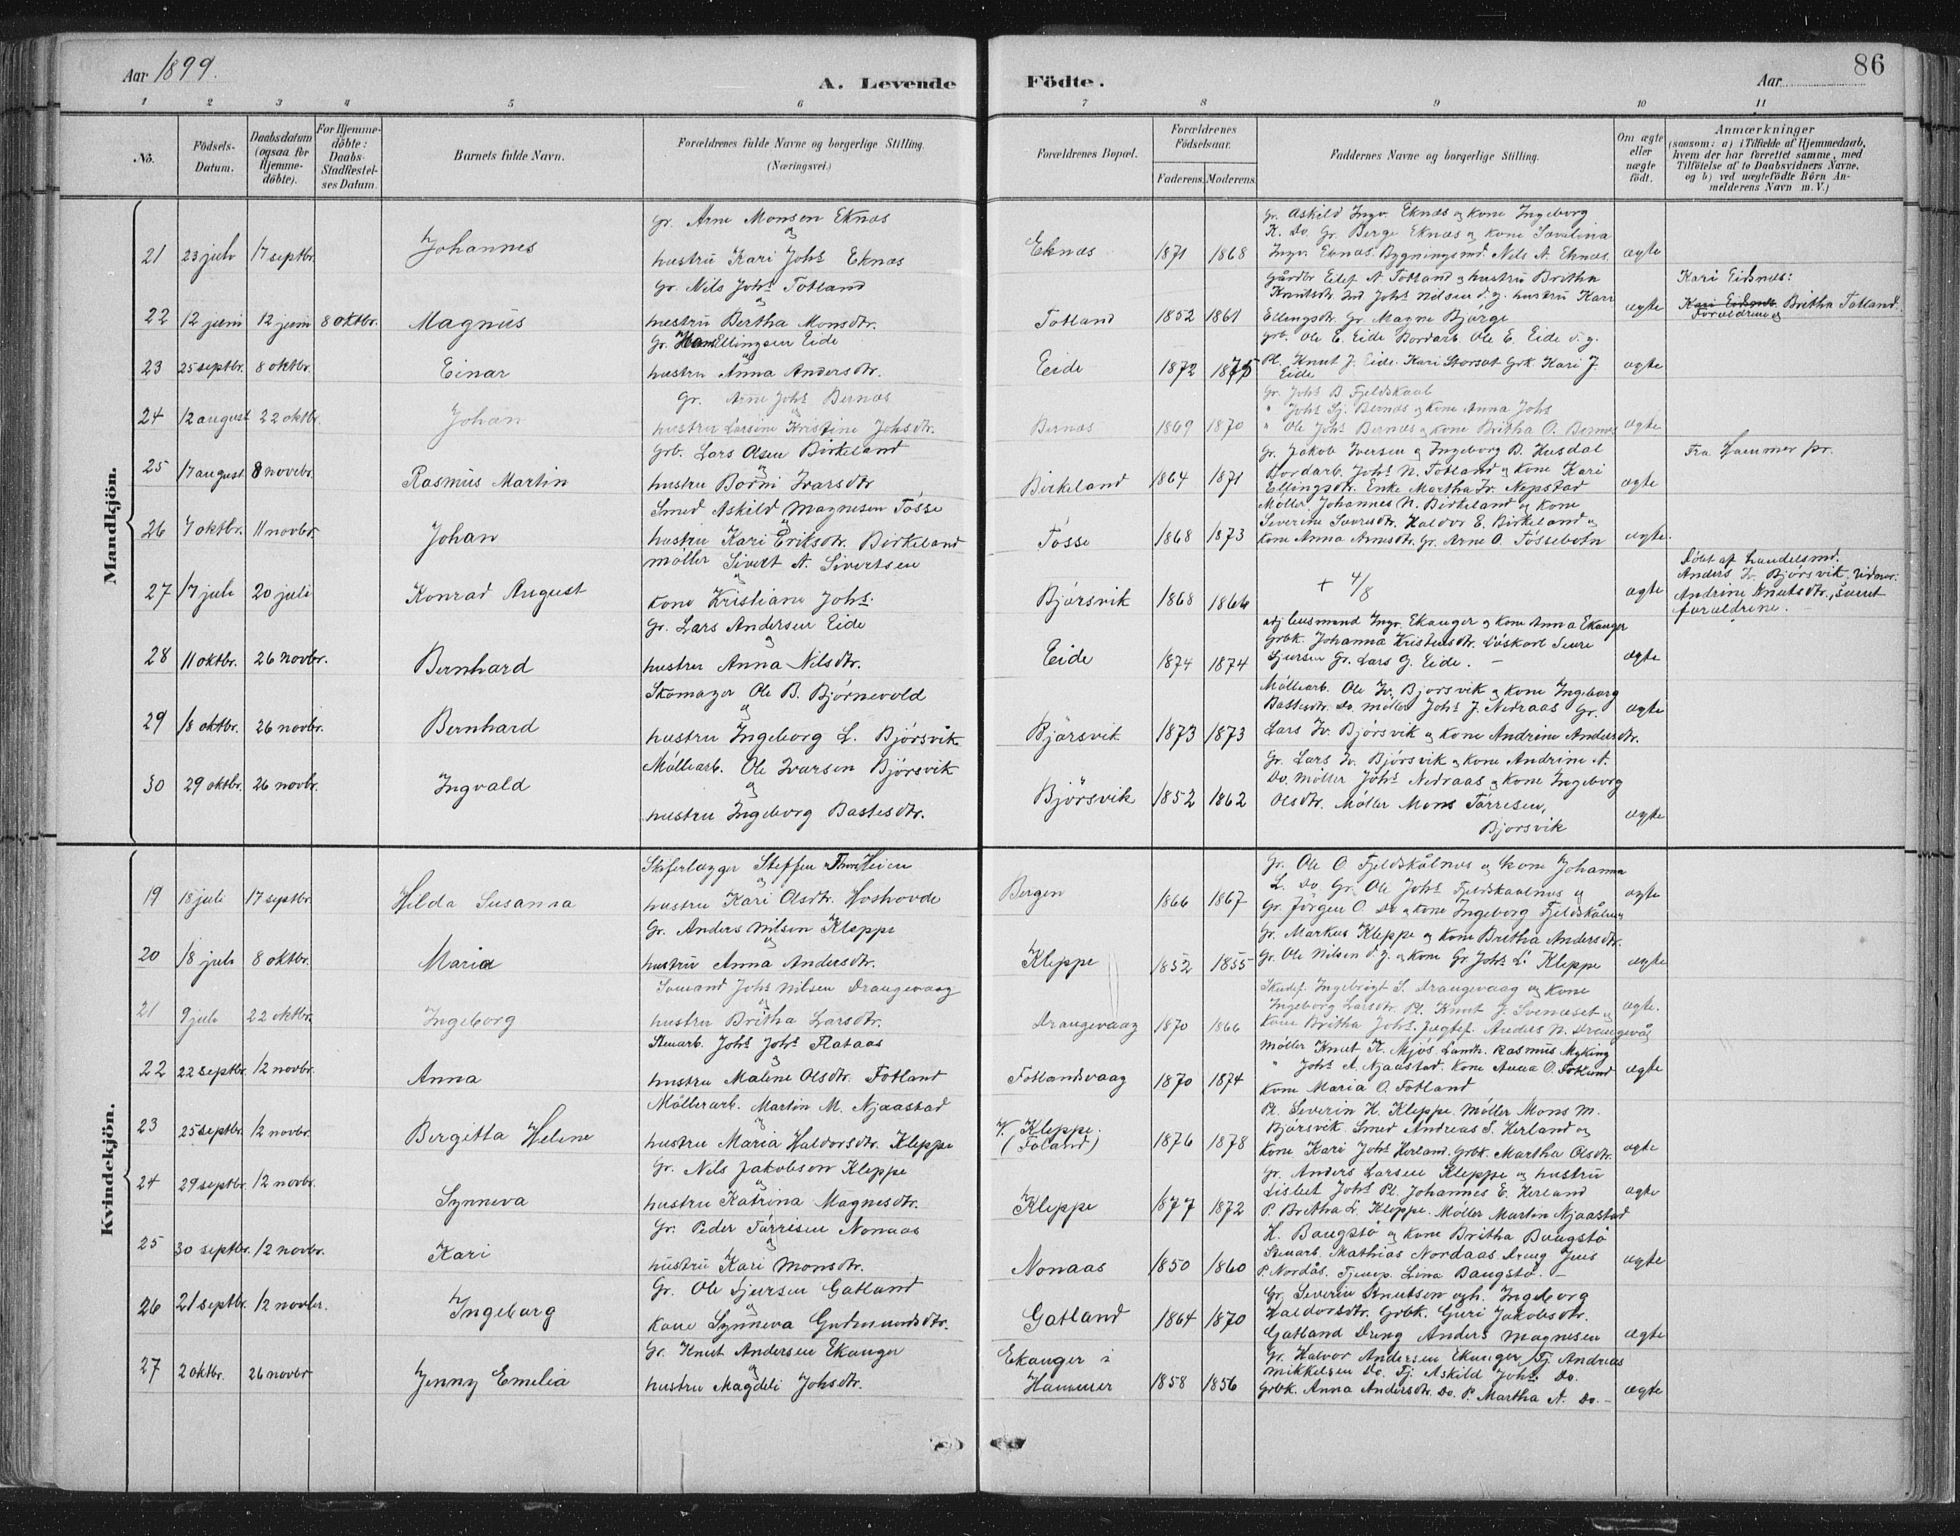 Aar 1899.
A. Levende Födte.
Aar
86
1 2 3 4 5 6 7 8 9 10 11
No.
Födsels-Datum.
Daabsdatum (ogsaa for Hjemmedöbte).
For Hjemmedöbte: Daabs-Stadfæstelses Datum.
Barnets fulde Navn.
Forældrenes fulde Navne og borgerlige Stilling. (Næringsvei.)
Forældrenes Bopæl.
Forældrenes Födselsaar.
Faderens. Moderens.
Faddernes Navne og borgerlige Stilling.
Om ægte eller uægte födt.
Anmærkninger
(saasom: a) i Tilfælde af Hjemmedaab,
hvem der har forrettet samme, med
Tilföielse af to Daabsvidners Navne,
og b) ved uægtefödte Börn An-
melderens Navn m. V.)
Mandkjön.
21 23 juli 17 septbr. Johannes
Gr. Arne Monsen Eknæs
og
hustru Kari Johs Eknæs
Eknæs 1871 1868
Gr. Askild Ingv. Eknæs og Kone Ingeborg
K. Do Gr. Berge Eknæs og Kone Sævalina
Ingv. Eknæs. Bygningsmd. Nils A. Eknæs.
ægte
22 12 juni 12 juni 8 oktbr. Magnus
Gr. Nils Johs Totland
og
hustru Bertha Monsdtr.
Totland 1852 1861
Gårdbr Eilef A. Totland og hustru Britha
Knutsdtr Ind Johs Nilsen d.y. hustru Kari
Ellingsdtr. Gr. Magne Bjørge
ægte
Kari Eidsnes:
Kari Eidsnes Britha Totland.
Forældrene og
23 25 septbr. 8 oktbr. Einar
Gr. Hans Ellingsen Eide
og
hustru Anna Andersdtr.
Eide 1872 1875
Grb. Ole E. Eide Bordarb. Ole E. Eide d.y.
Pl. Knut J. Eide. Kari Storset Grk. Kari J.
Eide
ægte
24 12 august 22 oktbr. Johan
Gr. Arne Johs Bernæs
og
hustru Larsine Kristine Johsdtr.
Bernæs 1869 1870
Gr. Johs B. Fjeldskaal
" Johs Sj. Bernæs og Kone Anna Johs
" Ole Johs Bernæs og Kone Britha O. Bernæs
ægte
25 17 august 8 novbr. Rasmus Martin
Grb. Lars Olsen Birkeland
og
hustru Borni Ivarsdtr
Birkeland 1864 1871
Gr. Jakob Iversen og Ingeborg B. Husdal
Bordarb. Johs N. Totland og Kone Kari
Ellingsdtr. Enke Martha Iv. Nepstad
ægte
Fra Hammer pr.
26 7 oktbr. 11 novbr. Johan
Smed Askild Magnesen Tösse
og
hustru Kari Eriksdtr. Birkeland
Tösse 1868 1873
Møller Johannes N. Birkeland og Kone
Severine Sweresdtr. Haldor E. Birkeland og
Kone Anna Arnesdtr. Gr. Arne O. Tössebotn
ægte.
27 17 juli 20 juli Konrad August
Møller Sivert A. Sivertsen
og
Kone Kristiane Johs.
Bjørsvik 1868 1866
+ 4/8
ægte
Døbt af Handelsmd.
Anders Iv. Bjørsvik. Vidner:
Andrine Knutsdtr., samt
forældrene.
28 11 oktbr. 26 novbr. Bernhard
Gr. Lars Andersen Eide
og
hustru Anna Nilsdtr.
Eide 1874 1874
Ingv. Ekanger og Kone Anna Ekanger
Grbk. Johanna Kristensdtr. Löskarl Sjure
Sjursen Gr. Lars G. Eide. –
ægte
29 18 oktbr. 26 novbr. Bernhard
Skomager Ole B. Björnevold
og
hustru Ingeborg L. Bjørsvik
Bjørsvik 1873 1873
Møllearb. Ole Iv. Bjorsvik og Kone Ingeborg
Bastesdtr. Do. Møller Johs J. Nedraas Gr.
Lars Iv. Bjørsvik og Kone Andrine Andersdtr.
ægte
30 29 oktbr. 26 novbr. Ingvald
Møllearb. Ole Ivarsen Bjørsvik
og
hustru Ingeborg Bastesdtr.
Bjørsvik 1852 1862
Gr. Lars Iv. Bjørsvik og Kone Andrine A.
Do. Møller Johs Nedraas og Kone Ingeborg
Olsdtr. Møller Mons Törresen,
Bjorsvik
ægte
Kvindekjön.
19 18 juli 17 septbr. Hilda Susanna
Skiferlægger Steffen Heien
og
hustru Kari Olsdtr. Hoshovde
Bergen 1866 1867
Gr. Ole O Fjeldskålnes og kone Johanna
L. Do Gr. Ole Johs Fjeldskaalnes og
Gr. Jörgen O. Do og Kone Ingeborg Fjeldskålnes
ægte
20 18 juli 8 oktbr. Maria
Gr. Anders Nilsen Kleppe
og
hustru Anna Andersdtr.
Kleppe 1852 1855
Gr. Markus Kleppe og Kone Britha Andersdtr.
Gr. Ole Nilsen d.y. og Kone Gr Johs L. Kleppe
ægte
21 9 juli 22 oktbr. Ingeborg
Sømand Johs Nilsen Drangevaag
og
hustru Britha Larsdtr.
Drangevaag 1870 1866
Skudef. Ingebrigt S. Drangevaag og Kone
Ingeborg Larsdtr. Pl. Knut J. Svenæset og
Kone Britha Johs. Jægtef. Andes N. Drangevåg
ægte.
22 22 septbr. 12 novbr. Anna
Stenarb. Johs Johs Flataas
og
hustru Malene Olsdtr. Totland
Totlandsvaag 1870 1874
Møller Knut K. Mjös Landh. Rasmus Myking
" Johs A. Njaastad. Kone Anna O. Totland
Kone Maria O. Totland
ægte
23 25 septbr. 12 novbr. Bergitta Helene
Møllerarb. Martin M. Njaastad
og
hustru Maria Haldorsdtr. Kleppe
Y. Kleppe.
(Toland)
1876 1878
Pl. Severin H. Kleppe. Møller Mons M.
Bjørsvik Smed Andreas S. Herland og
Kone Kari Johs Herland. Grbk. Martha Olsdtr.
ægte
24 29 septbr. 12 novbr. Synneva
Gr. Nils Jakobson Kleppe
og
hustru Katrina Magnesdtr.
Kleppe 1877 1872
Gr. Anders Larsen Kleppe og hustru
Lisbet Johs Pl. Johannes E. Herland
P. Britha L. Kleppe. Møller Martin Njaastad
ægte
25 30 septbr. 12 novbr. Kari
Gr. Peder Törrisen Nonaas
og
hustru Kari Monsdtr.
Nonaas 1850 1860
H. Baugstø og Kone Britha Baugstø
Stenarb. Mathias Nordaas Dreng Jens
P. Nordås. Tjenep. Lina Baugstø. –
ægte
26 21 septbr. 12 novbr. Ingeborg
Gr. Ole Sjursen Gatland
og
Kone Synneva Gudmundsdtr.
Gatland 1864 1870
Gr. Severin Knutson og h. Ingeborg
Haldorsdtr. Grbk. Guri Jakobsdtr.
Gatland Dreng Anders Magnesen
ægte
27 2 oktbr. 26 novbr Jenny Emelia
Gr. Knut Andersen Ekanger
og
hustru Magdeli Johsdtr.
Ekanger i
Hammer
1858 1856
Gr. Halvor Andersen Ekanger, Tj. Andreas
Mikkelsen Do. Tj. Askild Johs. Do.
Grbk. Anna Andersdtr. Do. P. Martha A. Do. –
ægte